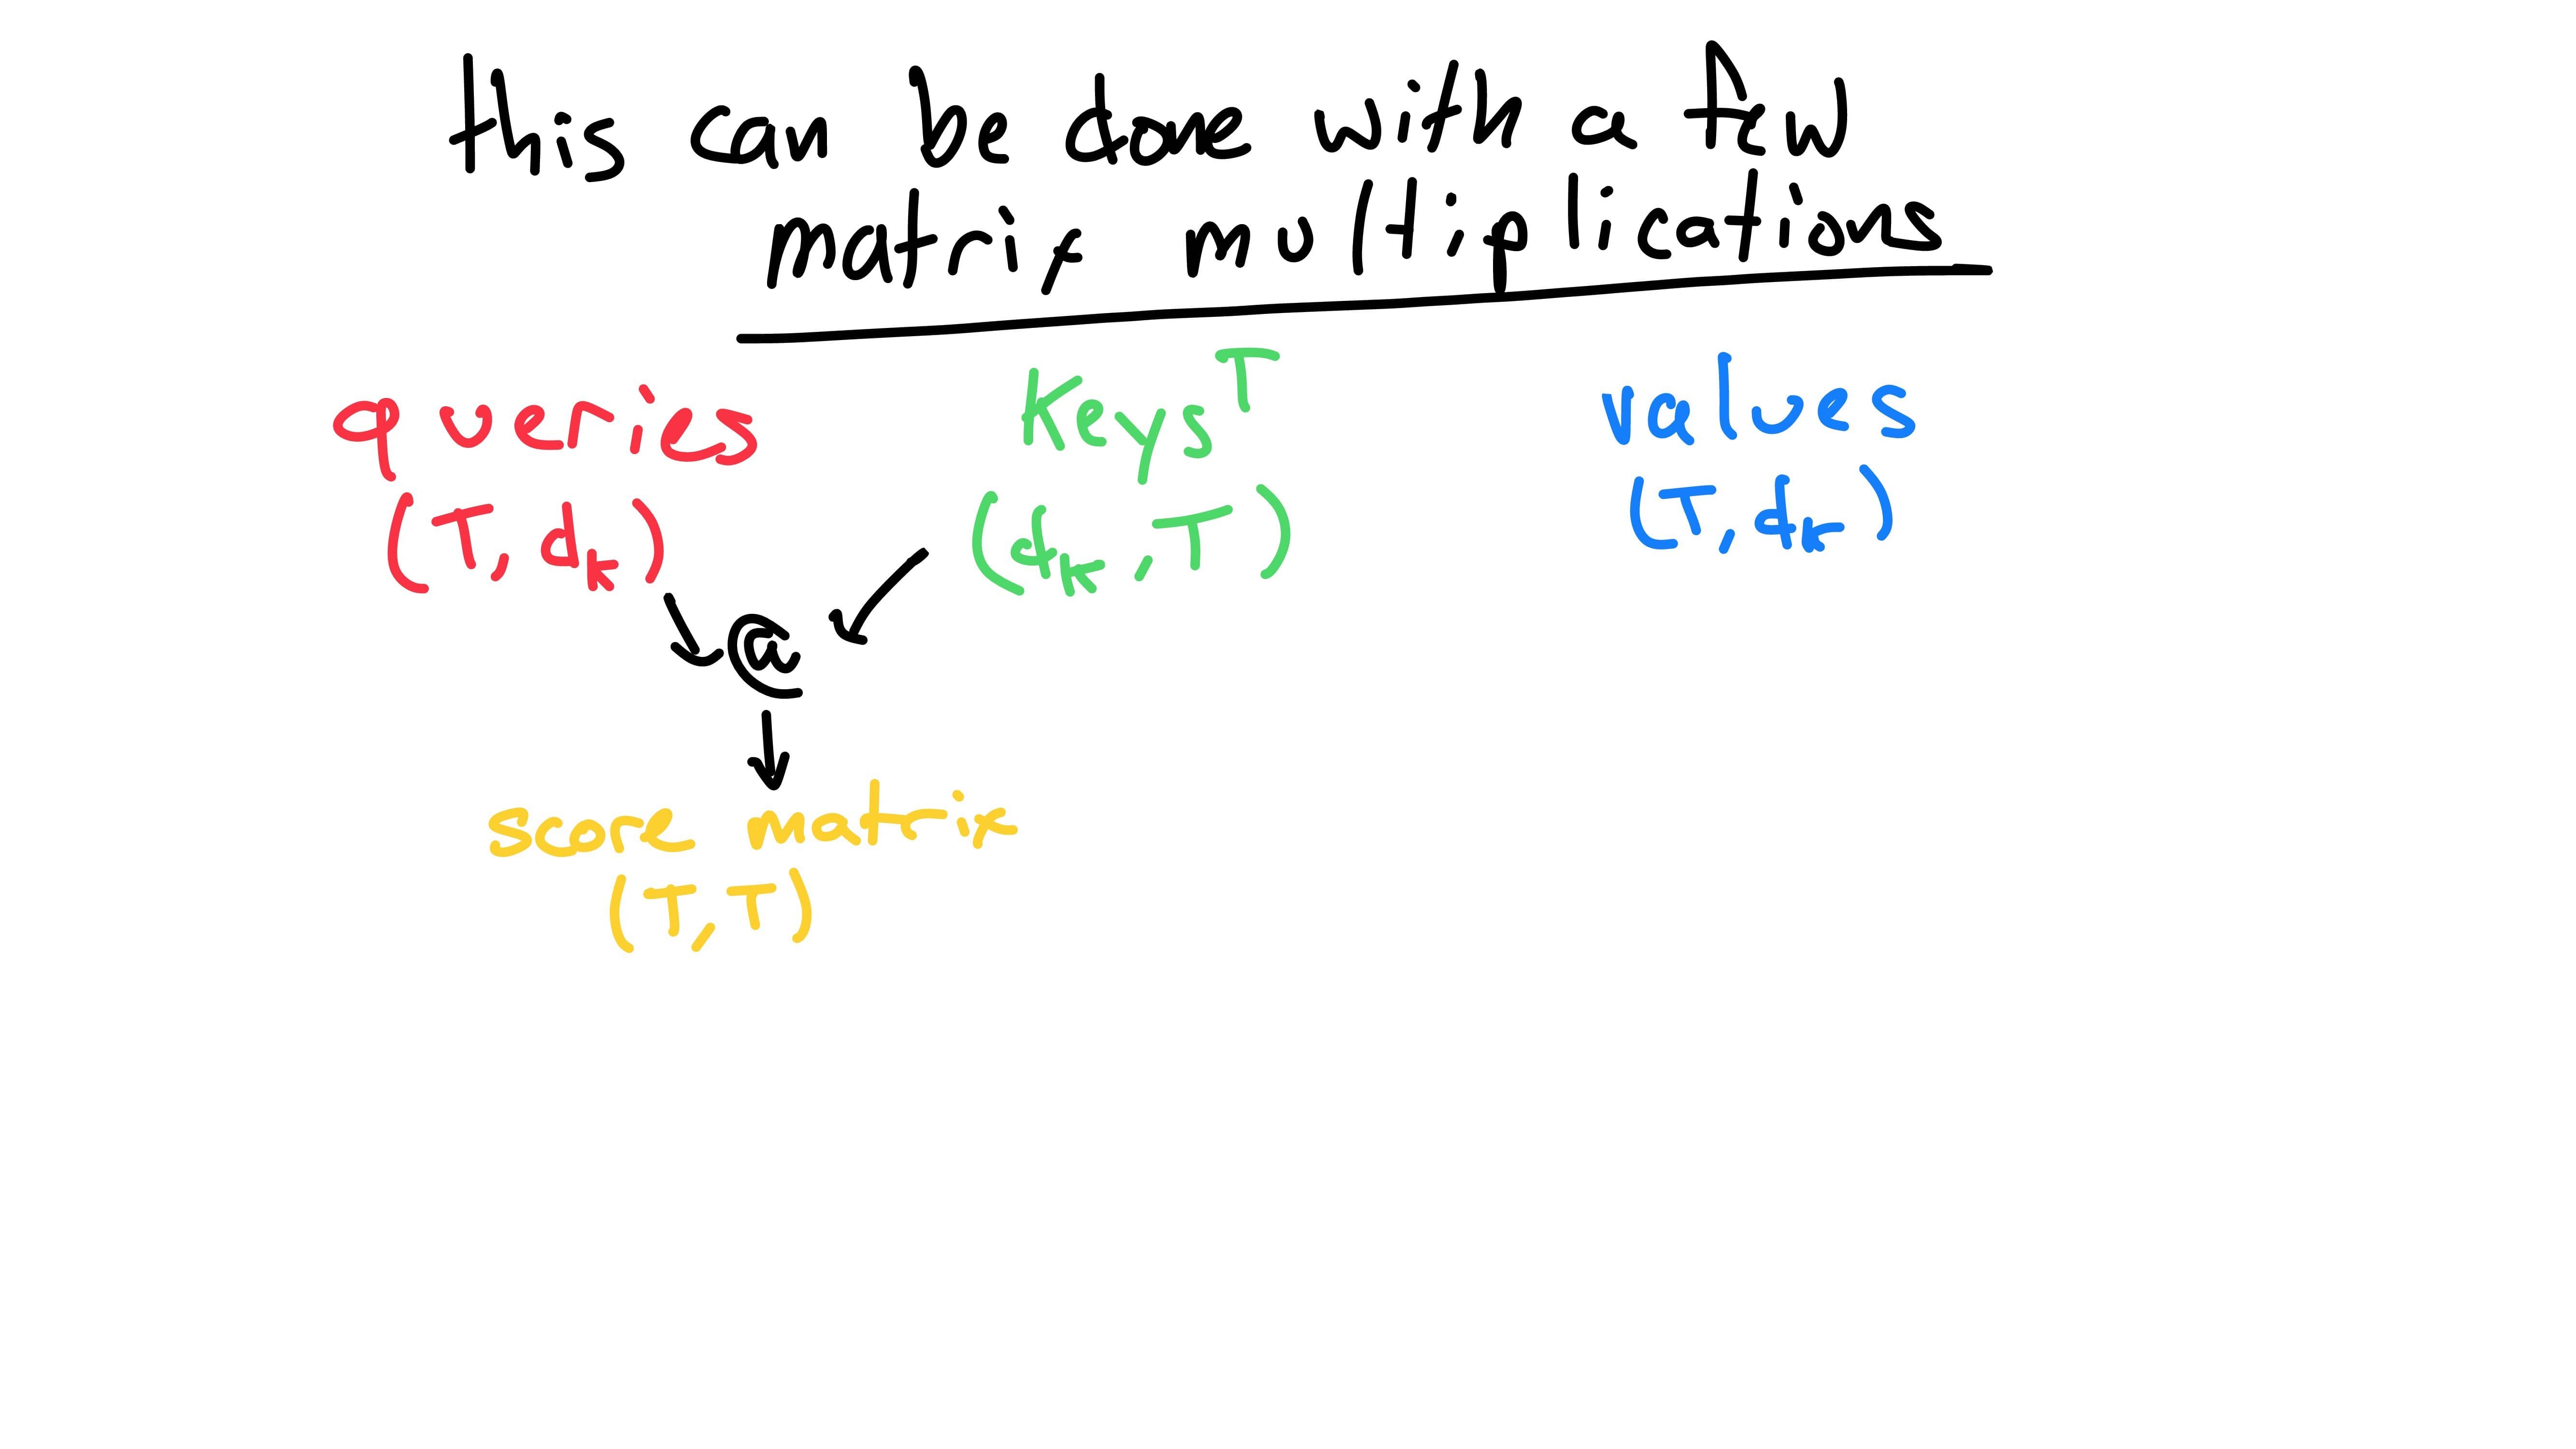 this can be done with a few
matrix multiplications
queries
(T, dk)
Keys^T
(dk, T)
values
(T, dk)
@
score matrix
(T, T)